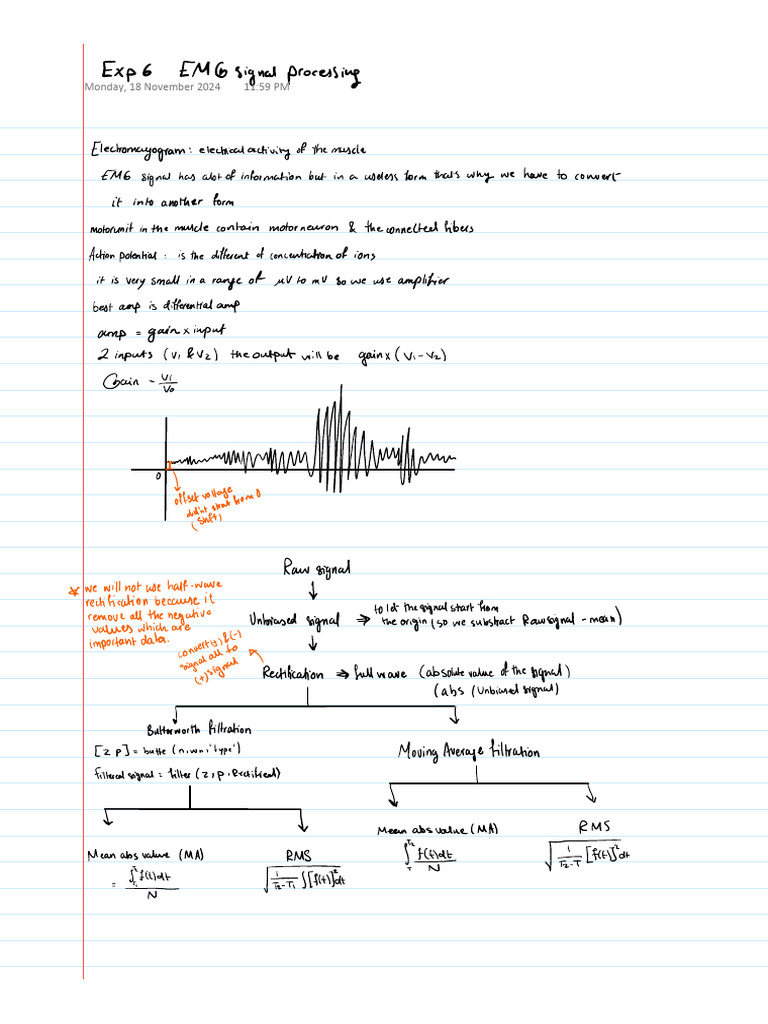 Exp 6 EMG signal processing
Monday, 18 November 2024 11:59 PM
Electromayogram : electrical activity of the muscle
EMG signal has alot of information but in a useless form thats why we have to convert
it into another form
motorunit in the muscle contain motor neuron & the connected fibers
Action potential : is the different of concentration of ions
it is very small in a range of μV to mV so we use amplifier
best amp is differential amp
amp = gain x input
2 inputs (V1 & V2) the output will be gain x (V1 - V2)
Gain - Vi/Vo
0
offset voltage
didn't start from 0
(shift)
Raw signal
* we will not use half-wave
rectification because it
remove all the negative
values which are
important data.
Unbiased signal ⇒ to let the signal start from
the origin (so we substract Raw signal - mean)
convert(+) & (-)
signal all to
(+) signal
Rectification ⇒ full wave (absolute value of the signal)
(abs (Unbiased signal)
Butterworth filtration
[z p] = butte (n, wn, 'type')
filtered signal = filter (z, p, Rectified)
Moving Average filtration
Mean abs value (MA)
= ∫ f(t)dt / N
RMS
√ 1/(T2-T1) ∫[f(t)]²dt
Mean abs value (MA)
∫ f(t)dt / N
RMS
√ 1/(T2-T) [f(t)]²dt